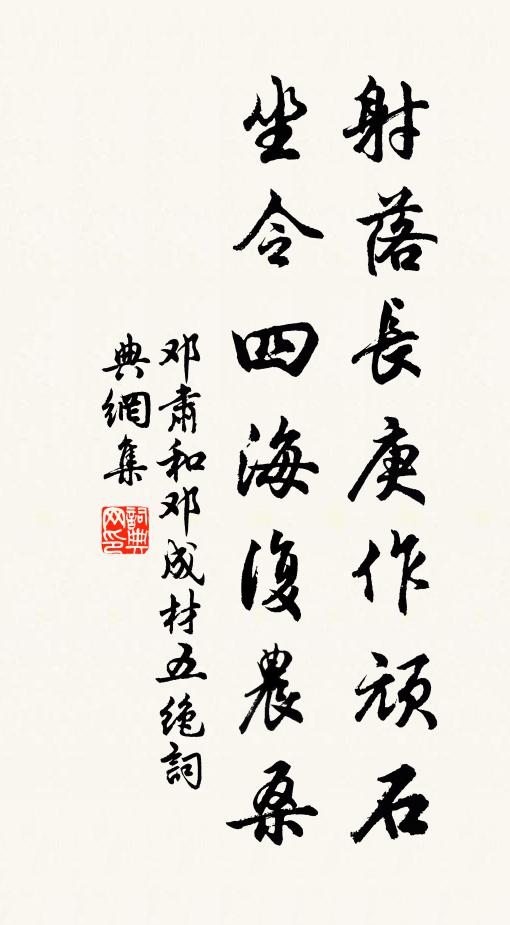 射落長庚作頑石
坐令四海復農桑
邓肅和邓成材五绝詞
典網集
詞典网印